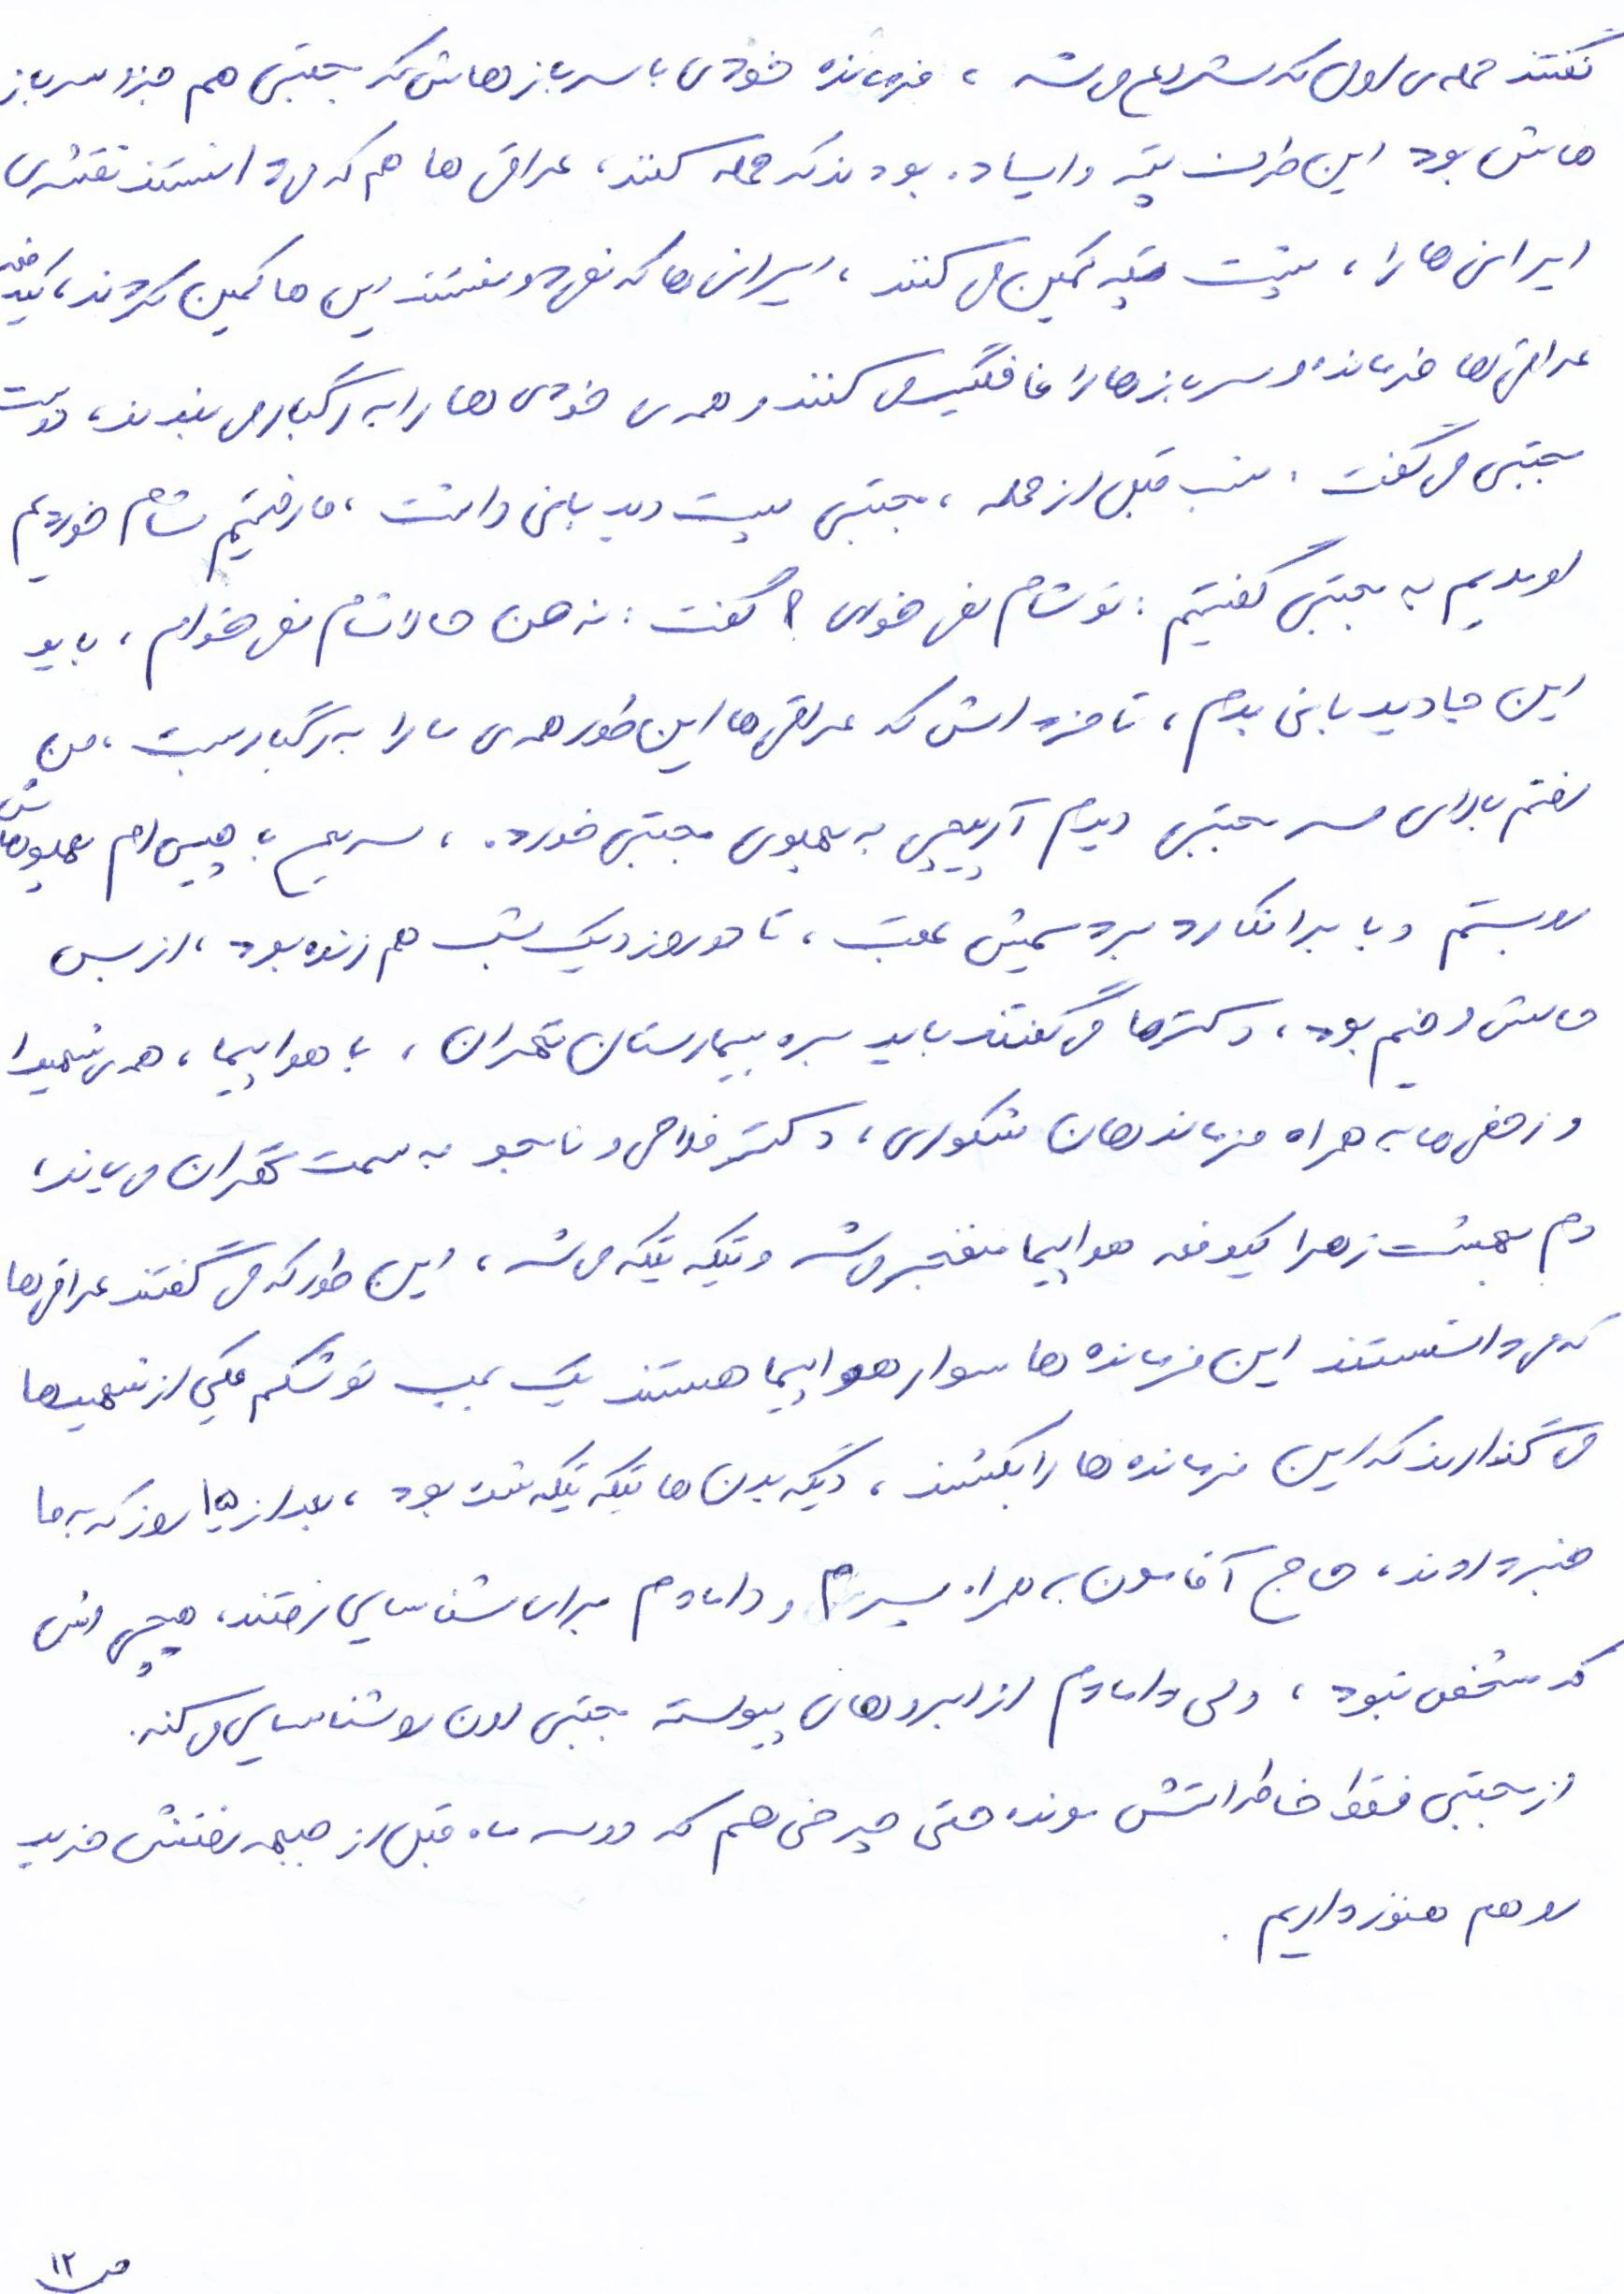 گفتند حمله‌ی اول که شروع می‌شه ، فرمانده خودی با سربازهاش که مجتبی هم جزو سرباز
هاش بود این طرف تپه وایساده بودند که حمله کنند، عراقی ها هم که می‌دانستند نقشه‌ی
ایرانی ها را ، پشت تپه کمین می‌کنند ، ایرانی ها که نمی‌دونستند این ها کمین کردند، یکدفعه
عراقی ها فرمانده و سربازها را غافلگیر می‌کنند و همه‌ی خودی ها را به رگبار می‌بندند، دوست
مجتبی می‌گفت : شب قبل از حمله ، مجتبی پست دیدبانی داشت ، ما رفتیم شام خوردیم
اومدیم به مجتبی گفتیم : تو شام نمی‌خوای ؟ گفت : نه من حالا شام نمی‌خوام ، باید
این جا دیدبانی بدم ، تا فرداش که عراقی ها این طور همه‌ی ما را به رگبار بست ، من
رفتم بالای سر مجتبی دیدم آرپیجی به پهلوی مجتبی خورده ، سریع با چپیه‌ام پهلوهاش
رو بستم و با برانکارد بردیمش عقب ، تا دو روز و یک شب هم زنده بود ، از بس
حالش وخیم بود ، دکترها می‌گفتند باید بره بیمارستان تهران ، با هواپیما ، همه‌ی شهیدا
و زخمی ها به همراه فرماندهان ، دکتر فلاحی و نامجو به سمت تهران می‌یاند ،
دم بهشت زهرا یکدفعه هواپیما منفجر می‌شه و تیکه تیکه می‌شه ، این طور که می‌گفتند عراقی ها
که می‌دانستند این فرمانده ها سوار هواپیما هستند یک بمب تو شکم یکی از شهیدها
می‌گذارند که این فرمانده ها را بکشند ، دیگه بدن ها تیکه تیکه شده بود ، بعد از ۱۵ روز که به ما
خبر دادند ، حاج آقامون به همراه پسرم و دامادم برای شناسایی رفتند ، هیچی اش
که مشخص نبود ، ولی دامادم از ابروهای پیوسته مجتبی اون رو شناسایی می‌کنه .
از مجتبی فقط خاطراتش مونده حتی چرخی هم که دو سه ماه قبل از جبهه رفتنش خرید
رو هم هنوز داریم .
ص ۱۲